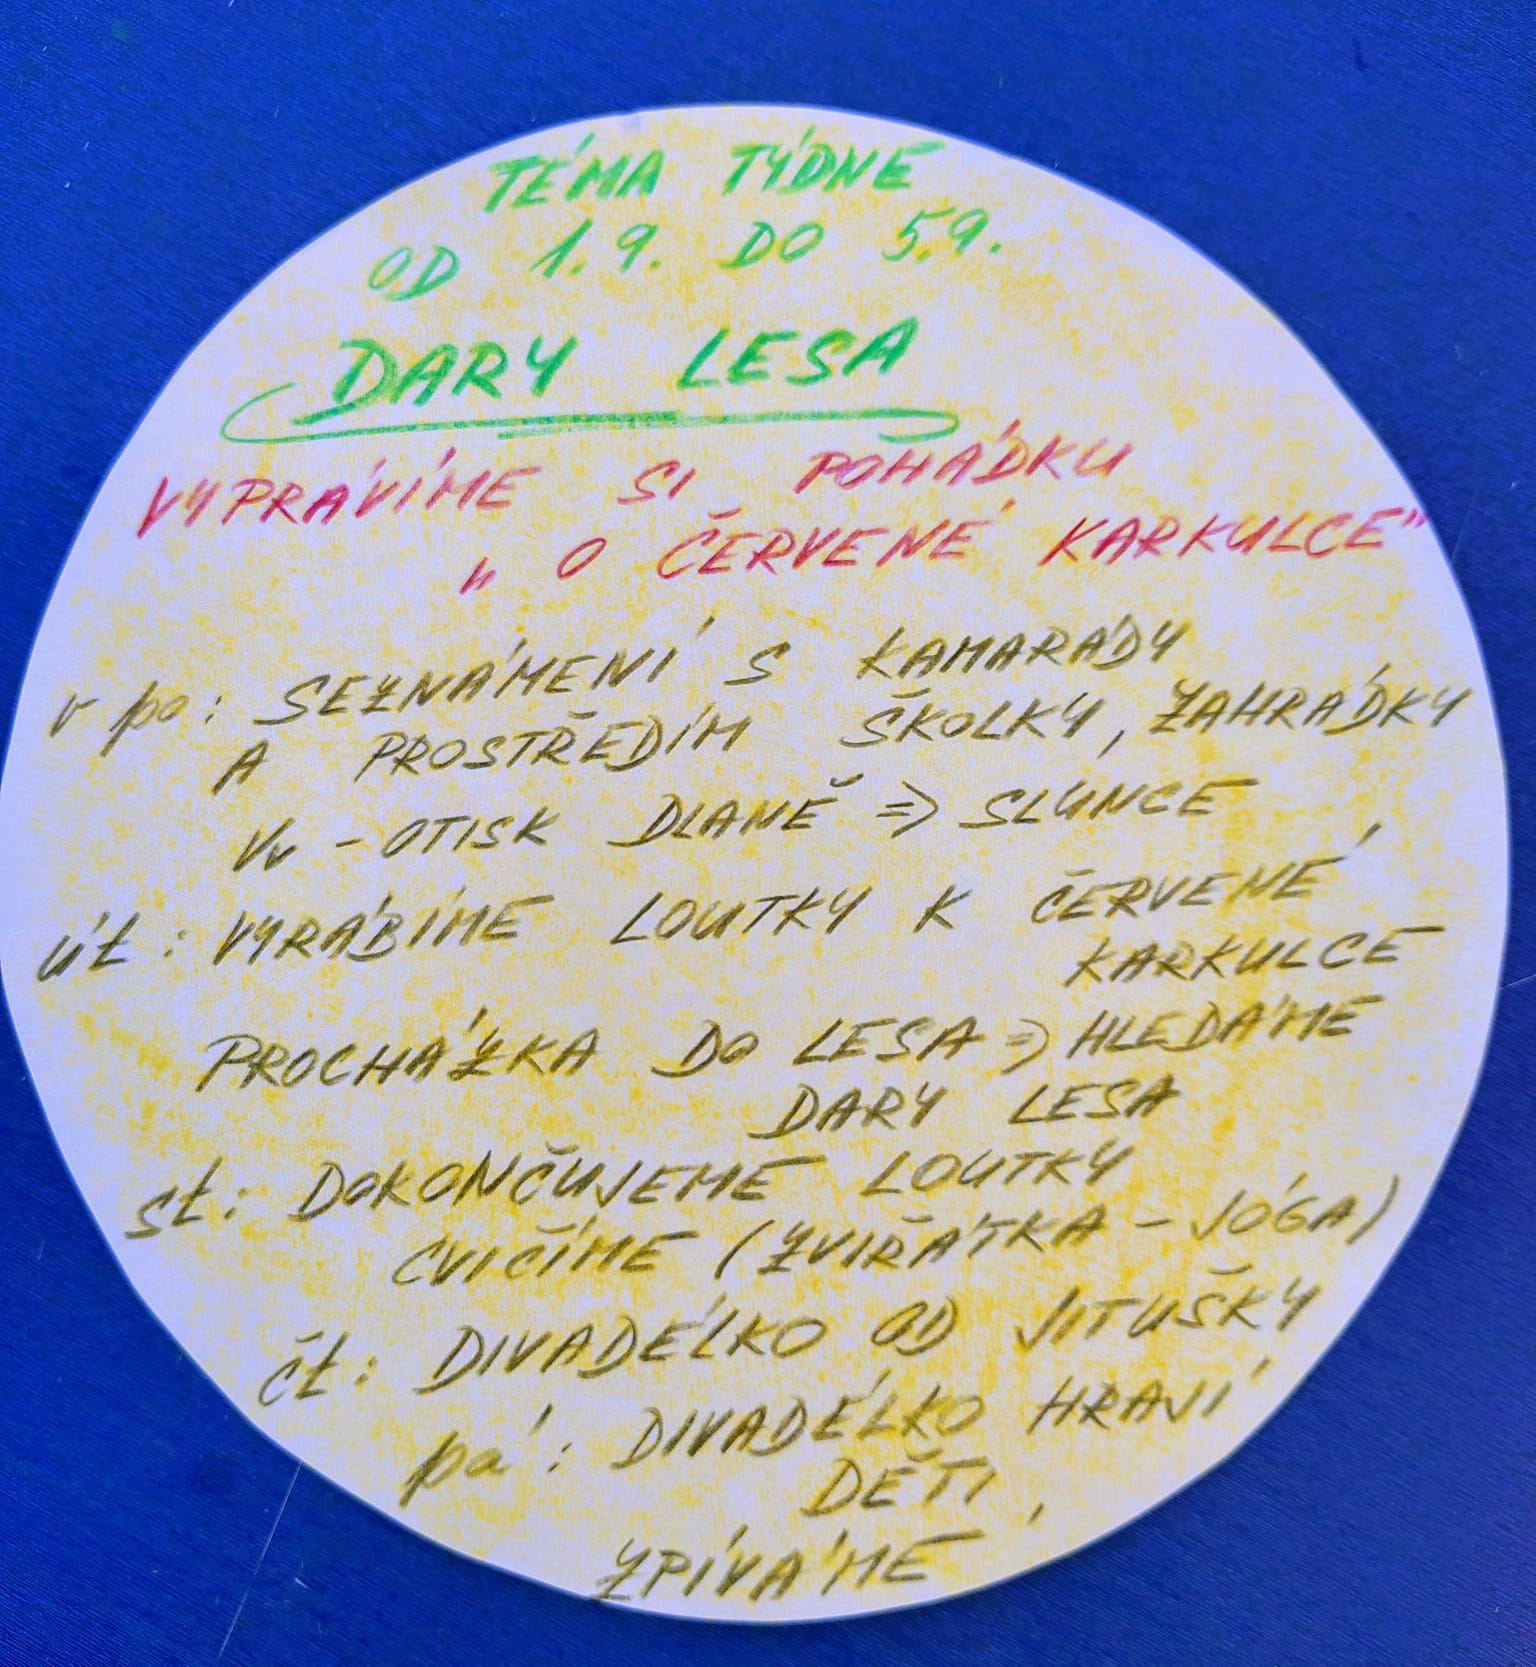 TÉMA TÝDNE
OD 1.9. DO 5.9.
DARY LESA
VYPRÁVÍME SI POHÁDKU
„ O ČERVENÉ KARKULCE"
v po: SEZNÁMENÍ S KAMARÁDY
A PROSTŘEDÍM ŠKOLKY, ZAHRÁDKY
Vv - OTISK DLANĚ => SLUNCE
út: VYRÁBÍME LOUTKY K ČERVENÉ
KARKULCE
PROCHÁZKA DO LESA => HLEDÁME
DARY LESA
st: DOKONČUJEME LOUTKY
CVIČÍME (ZVÍŘÁTKA - JÓGA)
čt: DIVADÉLKO OD JITUŠKY
pá: DIVADÉLKO HRAJÍ
DĚTI,
ZPÍVÁME